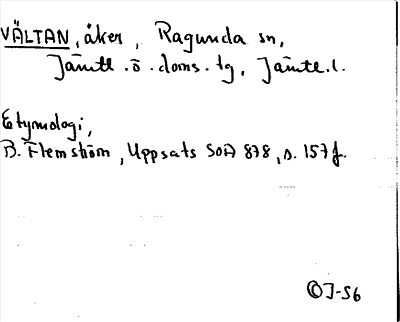 VÄLTAN, åker, Ragunda sn,
Jämtl. ö. doms. tg, Jämtl. l.
Etymologi,
B. Flemström, Uppsats SOA 878, s. 157 f.
ⒸJ-56